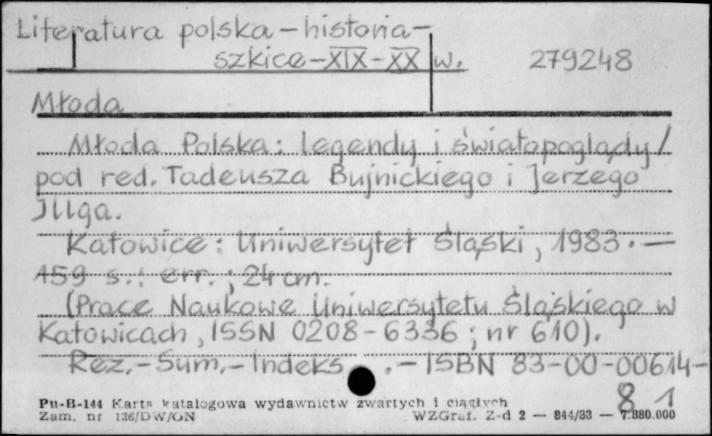 Literatura polska - historia -
szkice - XIX - XX w. 279248
Młoda
Młoda Polska: legendy i światopoglądy /
pod red. Tadeusza Bujnickiego i Jerzego
Illga.
Katowice: Uniwersytet Śląski, 1983. —
159 s.: err.; 24 cm.
(Prace Naukowe Uniwersytetu Śląskiego w
Katowicach, ISSN 0208-6336; nr 610).
Rez. - Sum. - Indeks .- ISBN 83-00-00614-
8 1
Pu-B-144 Karta katalogowa wydawnictw zwartych i ciągłych
Zam. nr 136/DW/ON WZGraf. Z-d 2 — 844/83 — 7.880.000